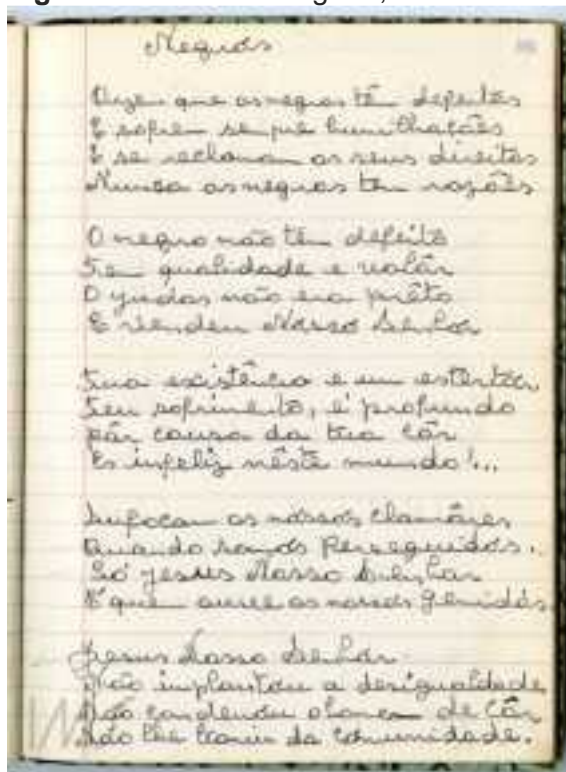 Negros
Dizem que os negros tễm defeitos
E sofrem sempre humilhações
E se reclamam os seus direitos
Nunca os negros tem razões
O negro não tem defeito
Tem qualidade e valôr
O Judas não era prêto
E vendeu Nosso Senhor
Tua existência e um estertôr
Teu sofrimento, é profundo
pôr causa da tua côr
És infeliz nêste mundo!...
Sufocam os nossos clamôres
Quando somos Perseguidos.
Só Jesus Nosso Senhor
É quem ouve os nossos gemidos.
Jesus Nosso Senhor
Não implantou a desigualdade
Não condenou o homem de côr
Não lhe da comunidade.